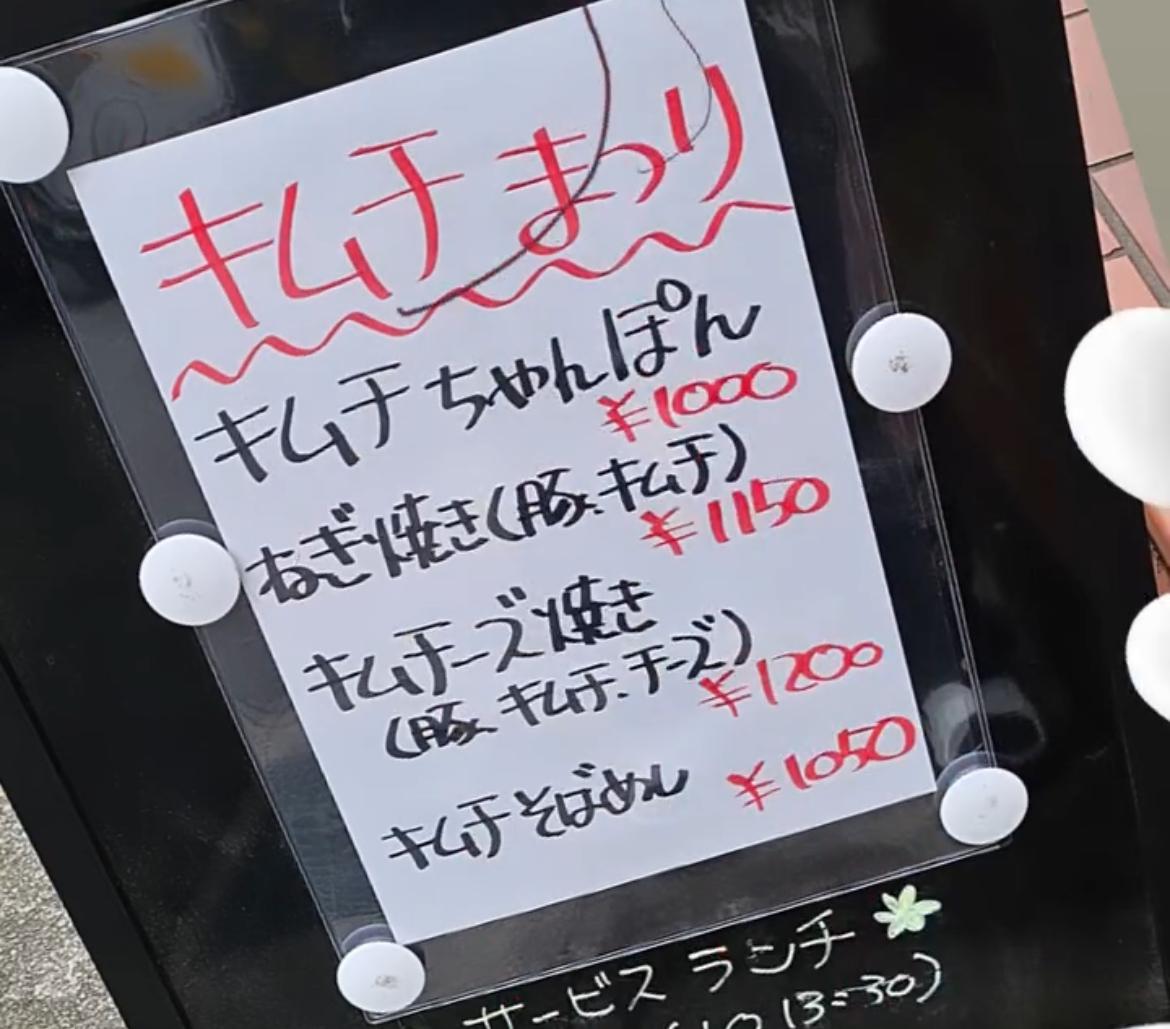 キムチまつり
キムチちゃんぽん
¥1000
ねぎ焼き(豚、キムチ)
¥1150
キムチーズ焼き
(豚、キムチ、チーズ)
¥1200
キムチそばめし ¥1050
サービスランチ
13:30)